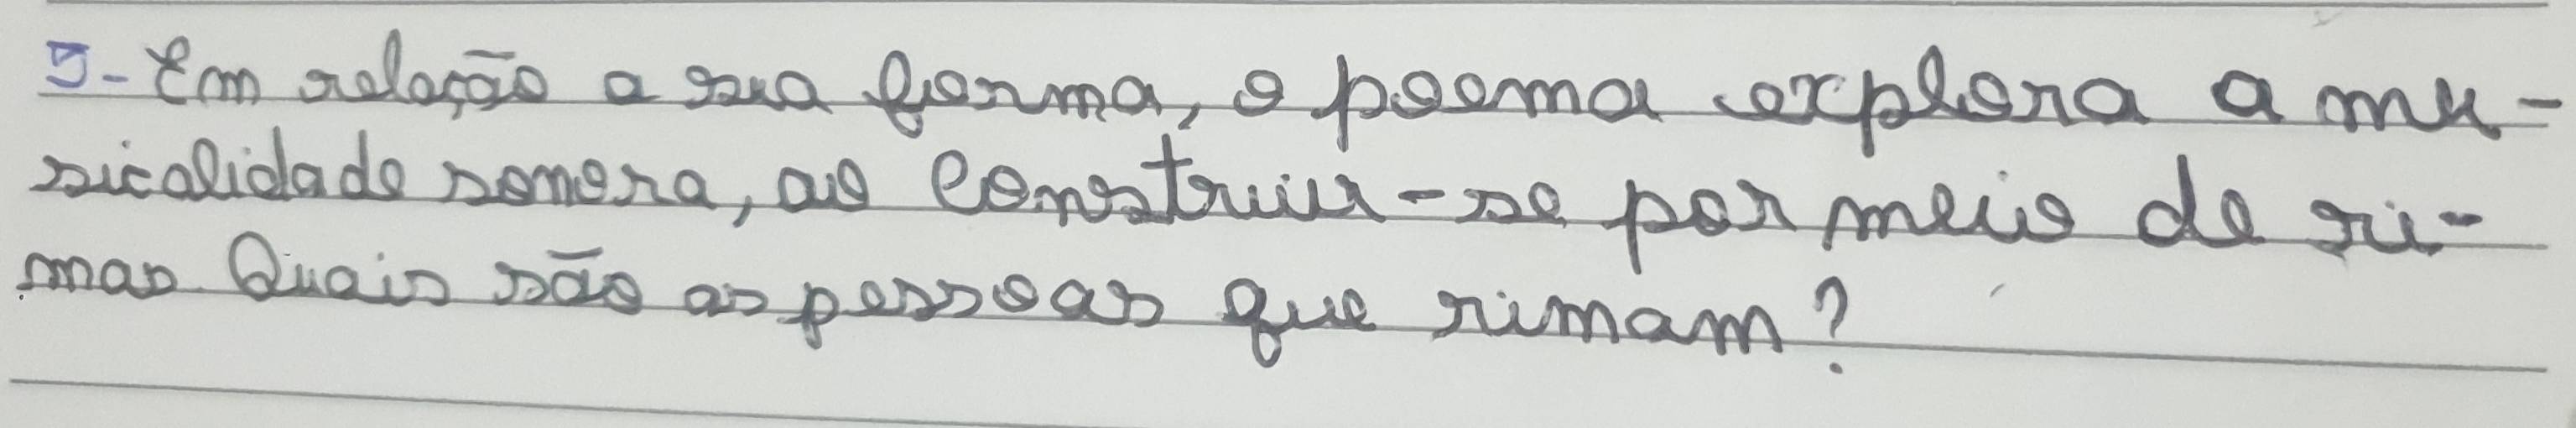 5- Em relação a sua forma, o poema explora a mu-
sicalidade sonora, ao construir-se por meio de ri-
mas. Quais são as pessoas que rimam?